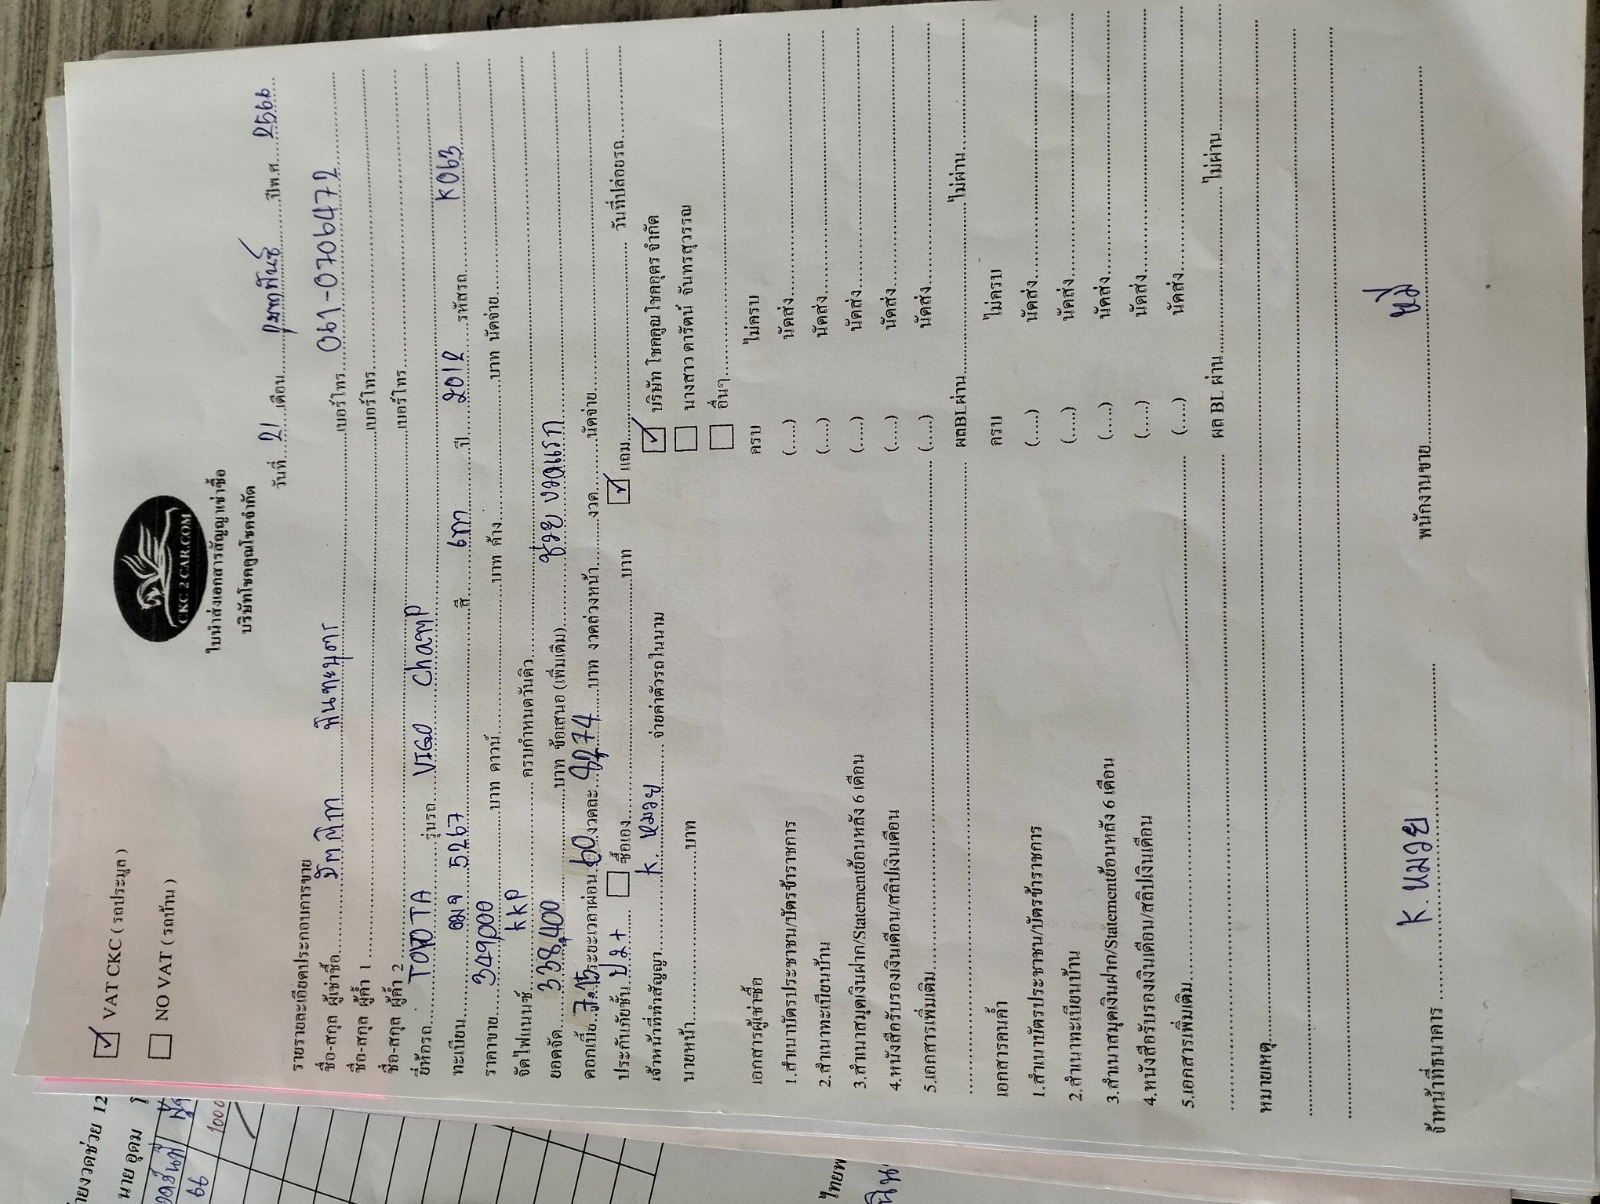 VAT CKC ( รถประมูล )
NO VAT ( รถบ้าน )
CKC 2 CAR.COM
ใบนำส่งเอกสารสัญญาเช่าซื้อ
บริษัทโชคคูณโชคจำกัด
วันที่ 21 เดือน กุมภาพันธ์ ปีพ.ศ. 2566
รายรายละเอียดประกอบการขาย
ชื่อ-สกุล ผู้เช่าซื้อ พินทะบุตร เบอร์โทร 061-0706472
ชื่อ-สกุล ผู้ค้ำ 1 เบอร์โทร
ชื่อ-สกุล ผู้ค้ำ 2 เบอร์โทร
ยี่ห้อรถ TOYOTA รุ่นรถ VIGO Champ
ทะเบียน ฒจ 5267 สี เทา ปี 2012 รหัสรถ K063
ราคาขาย 349,000 บาท ดาวน์ บาท ค้าง บาท นัดจ่าย
จัดไฟแนนซ์ kkp ครบกำหนดวันคิว
ยอดจัด 338,400 บาท ข้อเสนอ (เพิ่มเติม) ช่วย งวดแรก
ดอกเบี้ย 7.15 ระยะเวลาผ่อน 60 งวดละ 8,274 บาท งวดล่วงหน้า งวด นัดจ่าย
ประกันภัยชั้น ป.2+ ซื้อเอง บาท แถม วันที่ปล่อยรถ
เจ้าหน้าที่ทำสัญญา K. หมวย จ่ายค่าตัวรถในนาม บริษัท โชคคูณ โชคอุดร จำกัด
นางสาว ดารัตน์ จันทรสุวรรณ
นายหน้า บาท อื่นๆ
เอกสารผู้เช่าซื้อ ครบ ไม่ครบ
1.สำเนาบัตรประชาชน/บัตรข้าราชการ (.....) นัดส่ง
2.สำเนาทะเบียนบ้าน (.....) นัดส่ง
3.สำเนาสมุดเงินฝาก/Statementย้อนหลัง 6 เดือน (.....) นัดส่ง
4.หนังสือรับรองเงินเดือน/สลิปเงินเดือน (.....) นัดส่ง
5.เอกสารเพิ่มเติม (.....) นัดส่ง
ผลBLผ่าน ไม่ผ่าน
เอกสารคนค้ำ ครบ ไม่ครบ
1.สำเนาบัตรประชาชน/บัตรข้าราชการ (.....) นัดส่ง
2.สำเนาทะเบียนบ้าน (.....) นัดส่ง
3.สำเนาสมุดเงินฝาก/Statementย้อนหลัง 6 เดือน (.....) นัดส่ง
4.หนังสือรับรองเงินเดือน/สลิปเงินเดือน (.....) นัดส่ง
5.เอกสารเพิ่มเติม (.....) นัดส่ง
ผล BL ผ่าน ไม่ผ่าน
หมายเหตุ
จ้าหน้าที่ธนาคาร K. หมวย พนักงานขาย
ายงวดช่วย 12
นาย อุดม
66
1000
ไทยพ